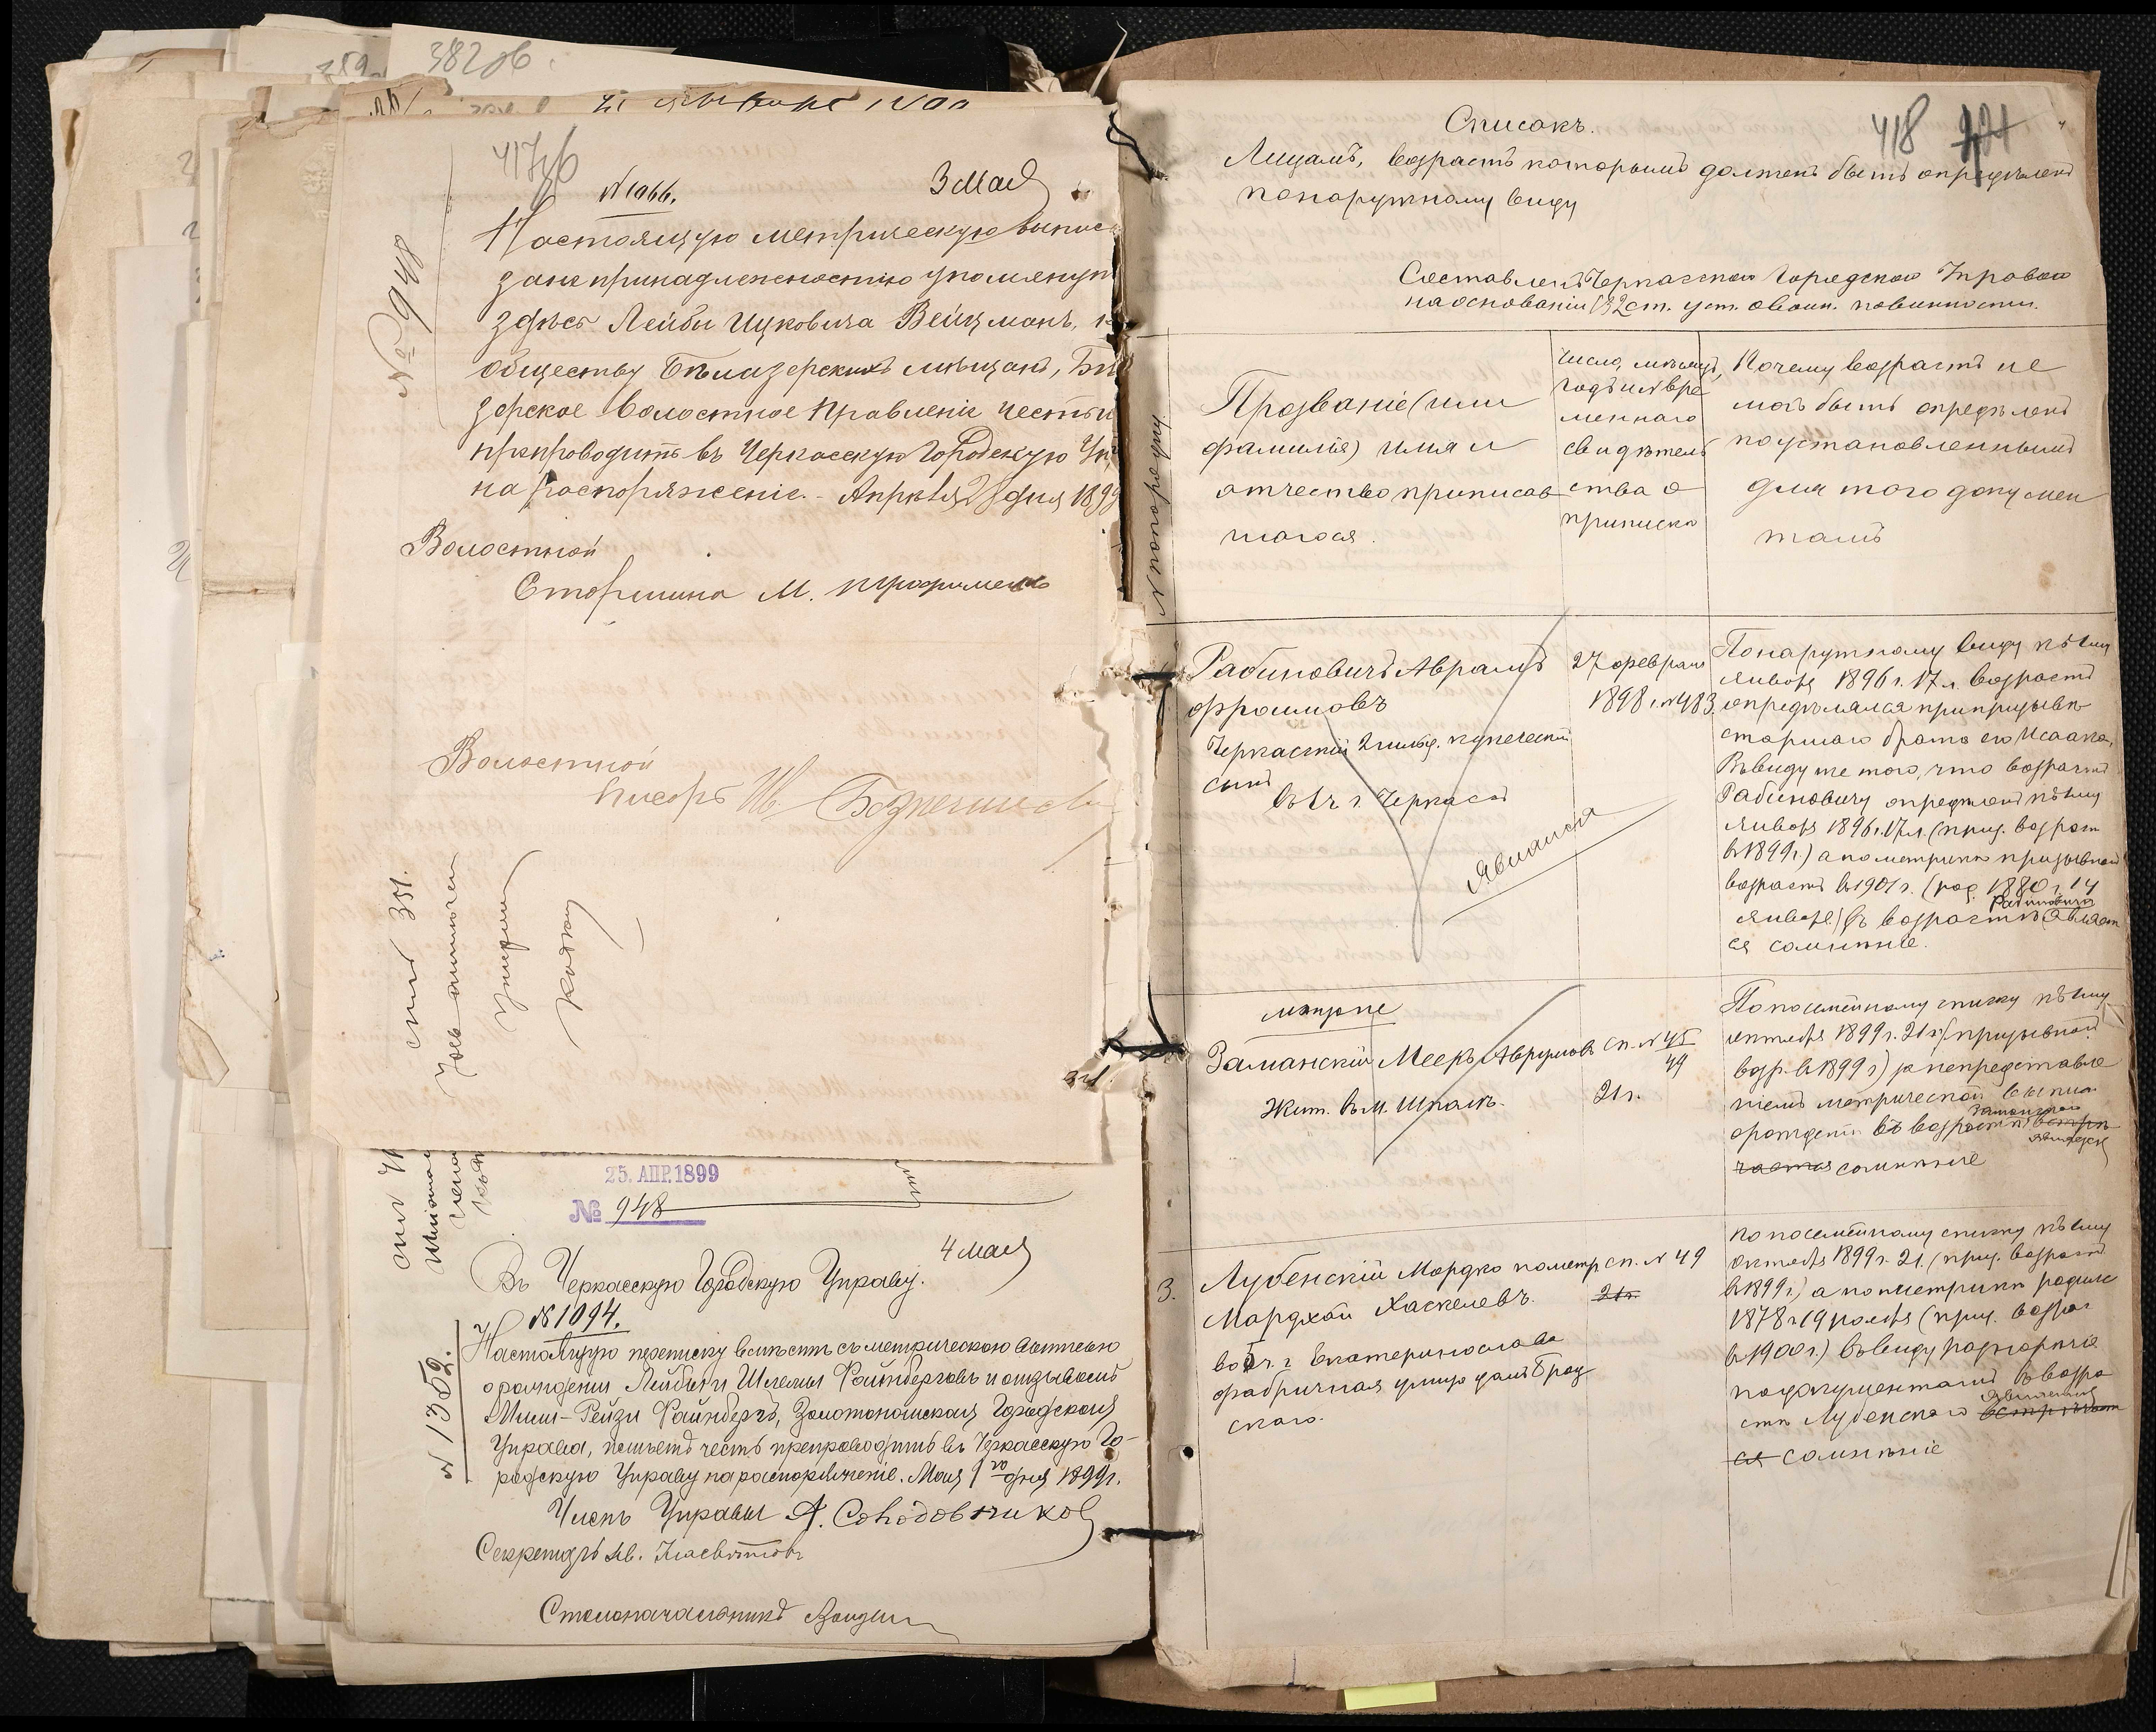 382об
359
417об
№ 1066.
3 мая
№ 948
Настоящую метрическую выпис
за не принадлежностію упомянут
здѣсь Лейбы Ицковича Вейцманъ, к
обществу Бѣлазерскихъ мѣщанъ, Бѣ
зерское Волостное Правленіе честь и
препроводить въ Черкасскую Городскую Уп
на распоряженіе. - Апрѣля 28 дня 1899
Волостной
Старшина М. Трофименко
Волостной
Писарь Ив.
спис 351.
25. АПР. 1899
№ 948
4 мая
Въ Черкасскую Городскую Управу.
№ 1094.
№ 1352.
Настоящую переписку вмѣстѣ съ метрическою выписью
о рожденіи Лейбы и Шлемы Файнберговъ и отзывомъ
Файнбергъ, Золотоношская Городская
Управа, имѣетъ честь препроводить въ Черкасскую Го-
родскую Управу на распоряженіе. Мая 1го дня 1899 г.
Членъ Управы А. Солодовников
Секретарь
Столоначальникъ
418 421
Списокъ.
Лицамъ, возрастъ которымъ долженъ быть опредѣленъ
по наружному виду
Составленъ Черкасской Городской Управой
на основаніи 132 ст. уст. о воин. повинности.
№ по порядку
Прозваніе (или
фамилія) имя и
отчество приписав
шагося.
Число, мѣсяцъ,
годъ и № вре
меннаго
свидѣтель
ства о
припискѣ
Почему возрастъ не
могъ быть опредѣленъ
по установленнымъ
для того докумен
тамъ
Рабиновичъ Аврамъ
Фроимовъ
Черкасскій 2 гильд. купеческій
сынъ
въ г. Черкасы
Явился
27 февраля
1898 г. № 483.
По наружному виду къ 1му
января 1896 г. 17 л. возрастъ
опредѣлялся при призывѣ
старшаго брата его Исаака,
Въ виду же того, что возрастъ
Рабиновичу опредѣленъ къ 1му
января 1896 г. 17 л. (приз. возраст
въ 1899 г.) а по метрикѣ призывной
возрастъ въ 1901 г. (род. 1880 г. 14
января) въ возрастѣ Рабиновича являет
ся сомнѣніе.
метрике
Заманскій Мееръ Аврумовъ
Жит. въ м. Шполѣ.
сп. № 45
49
21 г.
По посемейному списку къ 1му
октября 1899 г. 21 г. (призывной
возр. въ 1899 г.) за непредставле
ніемъ метрической выписи
о рожденіи въ возрастѣ Заманскаго встрѣ
является
чается сомнѣніе
3.
Лубенскій Мордко по метр
Мордхай Хаскелевъ.
въ г. Екатеринославѣ
фабричная улица домъ Брод
скаго.
сп. № 49
21 г.
По посемейному списку къ 1му
октября 1899 г. 21. (приз. возрастъ
въ 1899 г.) а по метрикѣ родился
1878 г. 19 ноября (приз. возрас
въ 1900 г.) въ виду разнорѣчія
по документамъ въ возра
стѣ Лубенскаго является встрѣчает
ся сомнѣніе